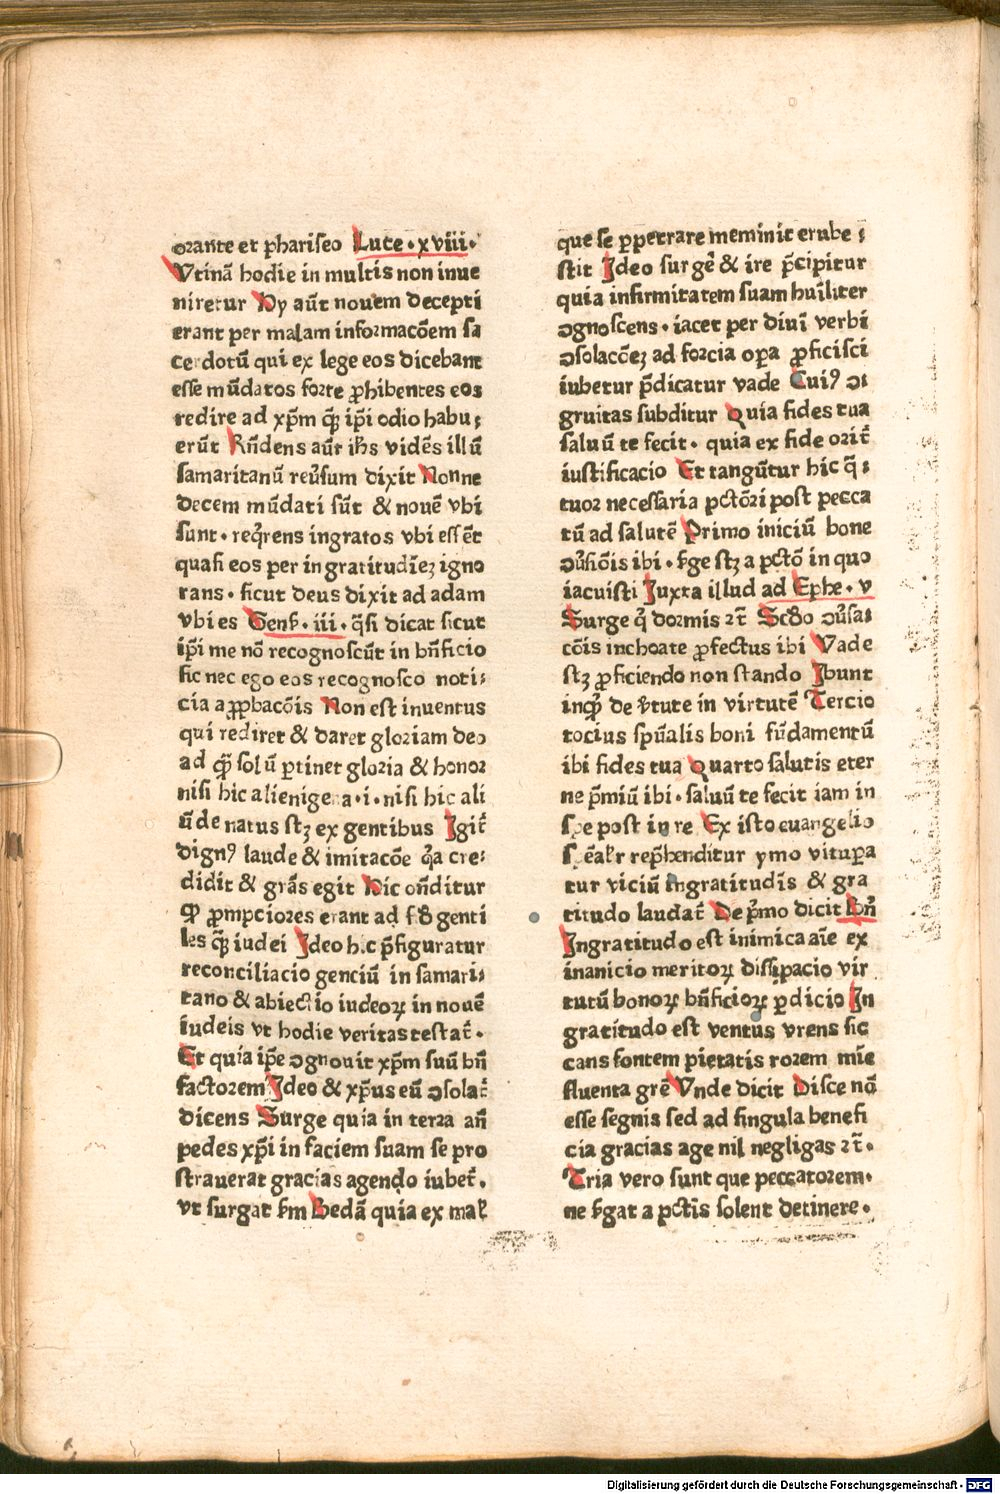 orante et phariseo Luce·xviii·
Vtinā hodie in multis non inue
niretur Hy aūt nouem decepti
erant per malam informacōem sa
cerdotū qui ex lege eos dicebant
esse mūdatos forte ꝓhibentes eos
redire ad xp̄m qͣ ip̄i odio habu⸗
erūt Rn̄dens aūt ih̄s vidēs illū
samaritanū reūsum dixit Nonne
decem mūdati sūt & nouē vbi
sunt· reqͥrens ingratos vbi essēt
quasi eos per ingratitudīeꝫ igno
rans· sicut deus dixit ad adam
vbi es Gen̄·iii· qͣsi dicat sicut
ip̄i me nō recognoscūt in bn̄ficio
sic nec ego eos recognosco noti⸗
cia aꝓꝓbacōis Non est inuentus
qui rediret & daret gloriam deo
ad quē̄ solū ꝑtinet gloria & honor
nisi hic alienigena·i·nisi hic ali
ūde natus sꝫ ex gentibus Igit̄
dignꝰ laude & imitacōe qͥa cre⸗
didit & grās egit Hic on̄ditur
ꝙ ꝓmpciores erant ad fidē genti
les qͣ iudei Ideo hic p̄figuratur
reconciliacio genciū in samari⸗
tano & abiectio iudeoꝝ in nouē
iudeis vt hodie veritas testat̄·
Et quia ip̄e ↄgnouit xp̄m suū bn̄
factorem Ideo & xp̄us eū ↄsolat̄
dicens Surge quia in terra an̄
pedes xp̄i in faciem suam se pro
strauerat gracias agendo iubet̄·
vt surgat fm Bedā quia ex mal̄
que se ꝑpetrare meminit erube⸗
scit Ideo surgē & ire p̄cipitur
quia infirmitatem suam hūiliter
ↄgnoscens· iacet per diuī verbi
ↄsolacōeꝫ ad forcia oꝑa ꝓficisci
iubetur p̄dicatur vade Cuiꝰ ↄ⸗
gruitas subditur Quia fides tua
saluū te fecit· quia ex fide orit̄
iustificacio Et tangūtur hic qͣ⸗
tuor necessaria pctōri post pecca
tū ad salutē Primo iniciū bone
ↄūsiōis ibi· surge sꝫ a pctō in quo
iacuisti Juxta illud ad Ephe·v
Surge qͥ dormis ⁊c̄ Scdo ↄūsa⸗
cōis inchoate ꝓfectus ibi Vade
sꝫ ꝓficiendo non stando Ibunt
inqͥt de v̄tute in virtutē Tercio
tocius spūalis boni fūdamentū
ibi fides tua Quarto salutis eter
ne p̄miū ibi· saluū te fecit iam in
spe post in re Ex isto euangelio
spēalr rep̄henditur ymo vituꝑa
tur viciū ingratitudīs & gra
titudo laudat̄ De pͥmo dicit Bn̄
Ingratitudo est inimica aīe ex
inanicio meritoꝝ dissipacio vir
tutū bonoꝝ bn̄ficioꝝ ꝑdicio In
gratitudo est ventus vrens sic
cans fontem pietatis rorem mīe
fluenta grē Vnde dicit Disce nō
esse segnis sed ad singula benefi
cia gracias age nil negligas ⁊c̄·
Tria vero sunt que peccatorem·
ne surgat a pctīs solent detinere·
Digitalisierung gefördert durch die Deutsche Forschungsgemeinschaft - DFG